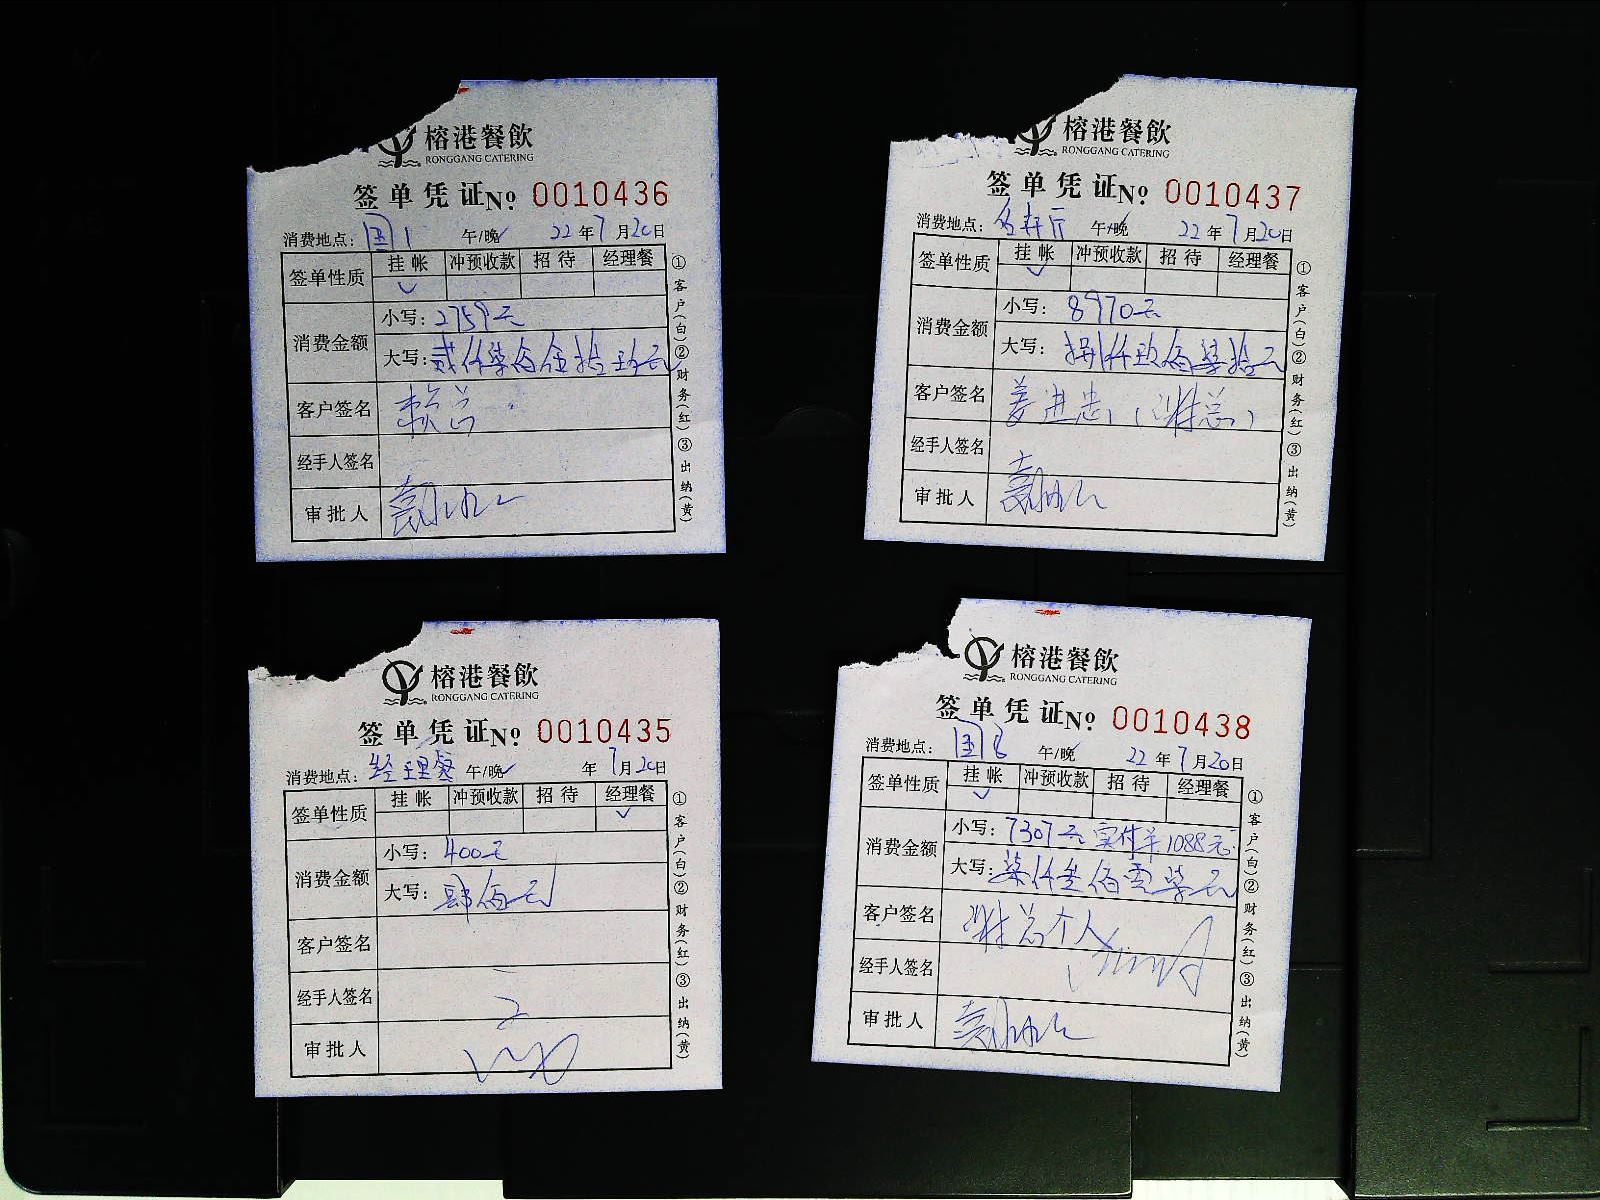 榕港餐飲
RONGGANG CATERING
签单凭证 Nº 0010436
消费地点: 国1 午/晚 22年7月20日
签单性质 挂帐 冲预收款 招待 经理餐
消费金额
小写: 2759元
大写: 贰仟柒佰伍拾玖元
客户签名 赖总
经手人签名
审批人
①客户(白)②财务(红)③出纳(黄)
榕港餐飲
RONGGANG CATERING
签单凭证 Nº 0010437
消费地点: 午/晚 22年7月20日
签单性质 挂帐 冲预收款 招待 经理餐
消费金额
小写: 8970元
大写: 捌仟玖佰柒拾元
客户签名 姜进忠 (林总)
经手人签名
审批人
①客户(白)②财务(红)③出纳(黄)
榕港餐飲
RONGGANG CATERING
签单凭证 Nº 0010435
消费地点: 经理餐 午/晚 年7月20日
签单性质 挂帐 冲预收款 招待 经理餐
消费金额
小写: 400元
大写: 肆佰元
客户签名
经手人签名
审批人
①客户(白)②财务(红)③出纳(黄)
榕港餐飲
RONGGANG CATERING
签单凭证 Nº 0010438
消费地点: 午/晚 22年7月20日
签单性质 挂帐 冲预收款 招待 经理餐
消费金额
小写: 7307元 实付羊1088元
大写: 柒仟叁佰零柒元
客户签名 林总个人
经手人签名
审批人
①客户(白)②财务(红)③出纳(黄)